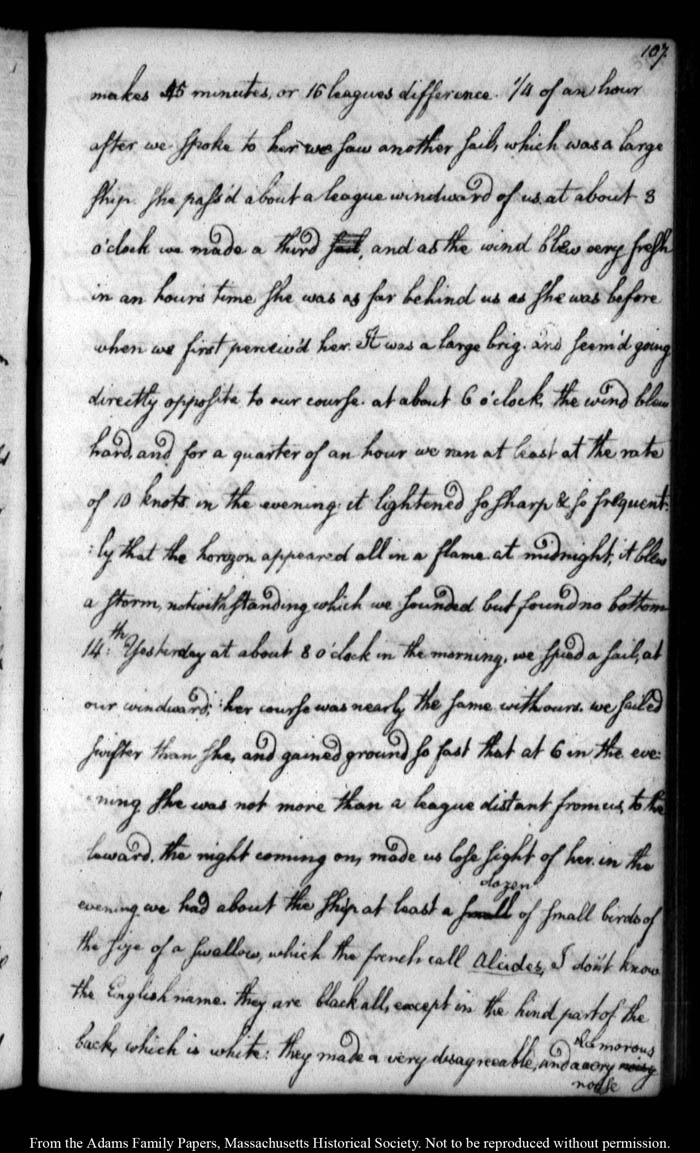 107.
makes 45 minutes, or 16 leagues difference. 1/4 of an hour
after we spoke to her we saw another sail, which was a large
ship. she pass'd about a league windward of us. at about 3
o'clock we made a third sail, and as the wind blew very fresh
in an hours time she was as far behind us as she was before
when we first perceiv'd her. It was a large brig. and seem'd going
directly opposite to our course. at about 6 o'clock, the wind blew
hard, and for a quarter of an hour we ran at least at the rate
of 10 knots. in the evening it lightened so sharp & so frequent:
:ly that the horizon appeared all in a flame. at midnight, it blew
a storm, notwithstanding which we sounded but found no bottom
14:th Yesterday at about 8 o'clock in the morning, we spied a sail, at
our windward; her course was nearly the same with ours. we sailed
swifter than she, and gained ground so fast that at 6 in the eve:
:ning she was not more than a league distant from us, to the
leward. the night coming on, made us lose sight of her. in the
dozen
evening we had about the ship at least a small of small birds of
the size of a swallow, which the french call Alcides, I don't know
the English name. they are black all, except in the hind part of the
clamorous
back, which is white: they made a very disagreeable, and a very noisy
noise
From the Adams Family Papers, Massachusetts Historical Society. Not to be reproduced without permission.